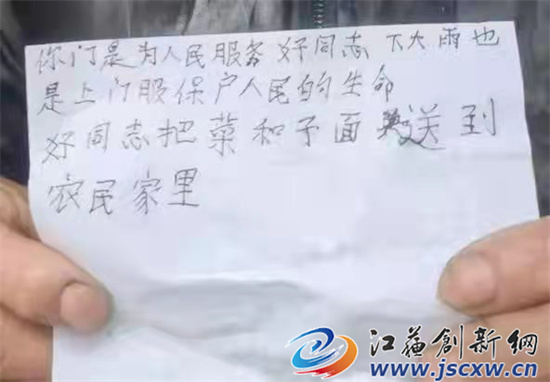 你门是为人民服务 好同志 下大雨也
是上门服保户人民的生命
好同志把菜和子面送到
农民家里
江蘇創新網
www.jscxw.cn